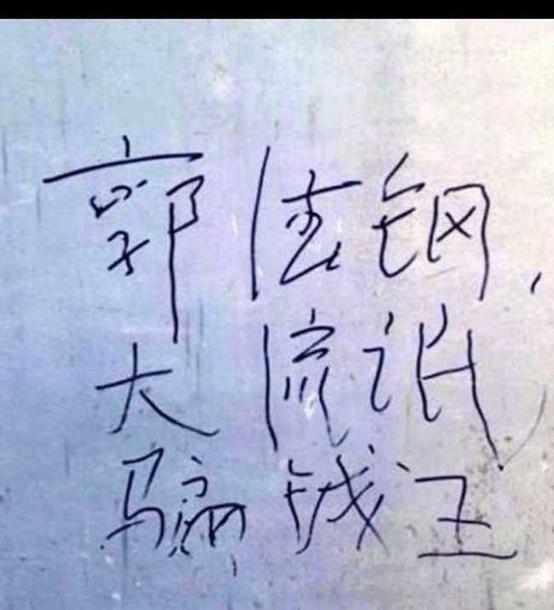 郭法钢,
大流氓
骗钱王